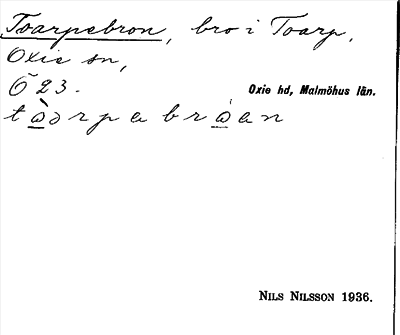 Toarpebron, bro i Toarp,
Oxie sn,
Ö 23.
Oxie hd, Malmöhus län.
NILS NILSSON 1936.